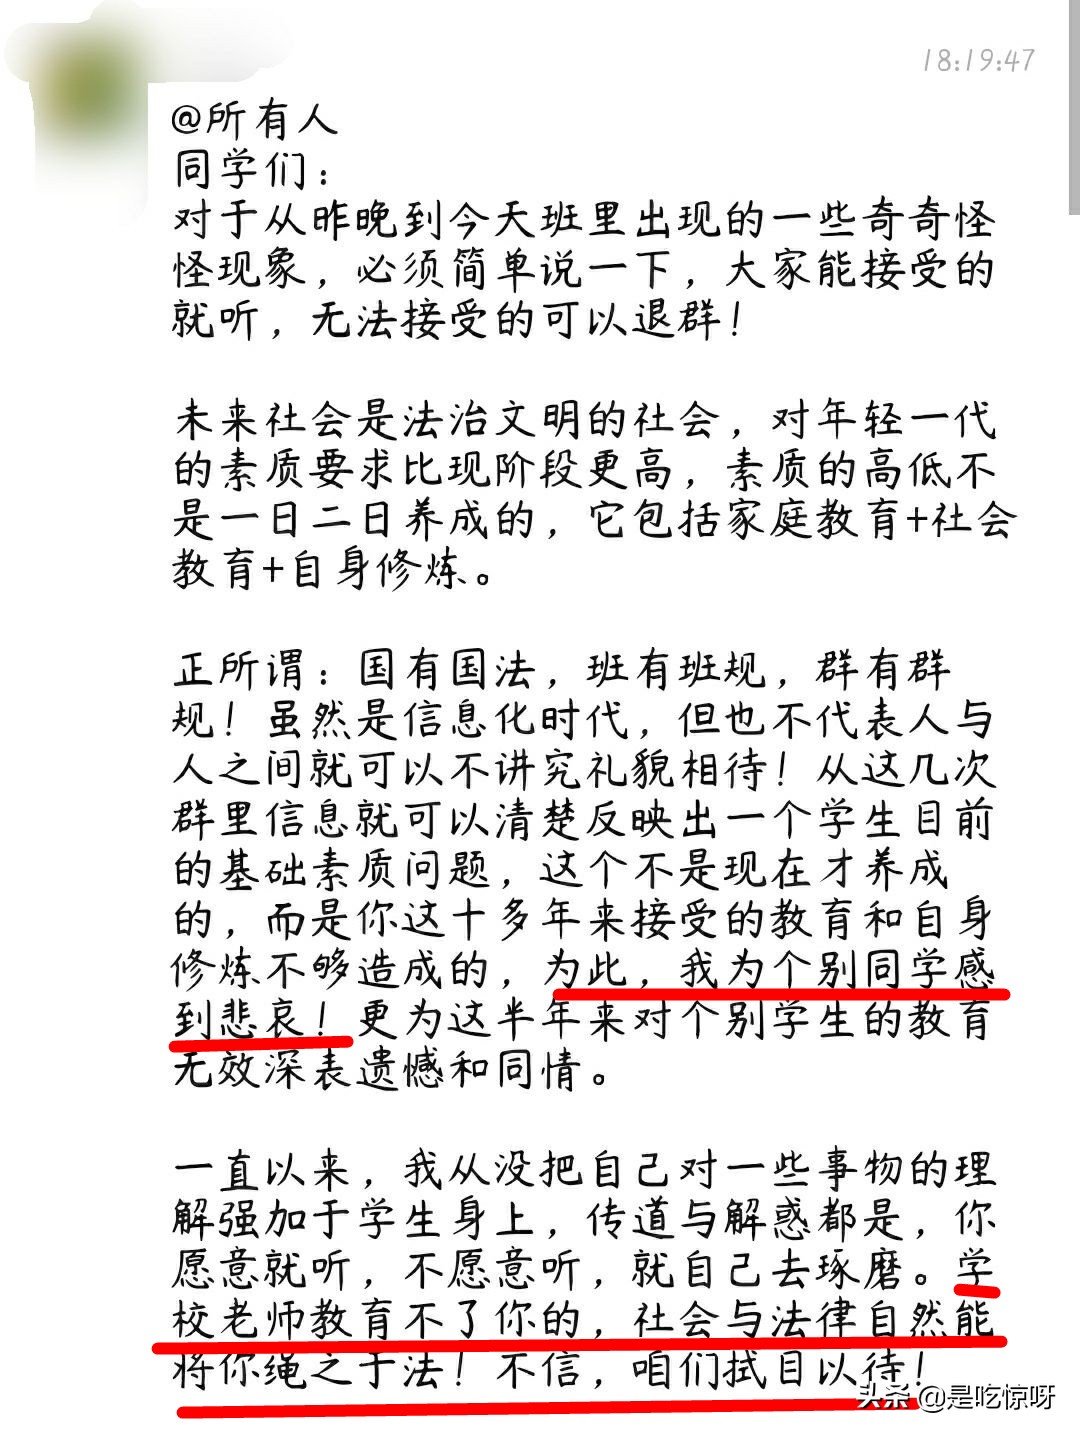 18:19:47
@所有人
同学们：
对于从昨晚到今天班里出现的一些奇奇怪
怪现象，必须简单说一下，大家能接受的
就听，无法接受的可以退群！
未来社会是法治文明的社会，对年轻一代
的素质要求比现阶段更高，素质的高低不
是一日二日养成的，它包括家庭教育+社会
教育+自身修炼。
正所谓：国有国法，班有班规，群有群
规！虽然是信息化时代，但也不代表人与
人之间就可以不讲究礼貌相待！从这几次
群里信息就可以清楚反映出一个学生目前
的基础素质问题，这个不是现在才养成
的，而是你这十多年来接受的教育和自身
修炼不够造成的，为此，我为个别同学感
到悲哀！更为这半年来对个别学生的教育
无效深表遗憾和同情。
一直以来，我从没把自己对一些事物的理
解强加于学生身上，传道与解惑都是，你
愿意就听，不愿意听，就自己去琢磨。学
校老师教育不了你的，社会与法律自然能
将你绳之于法！不信，咱们拭目以待！
头条 @是吃惊呀